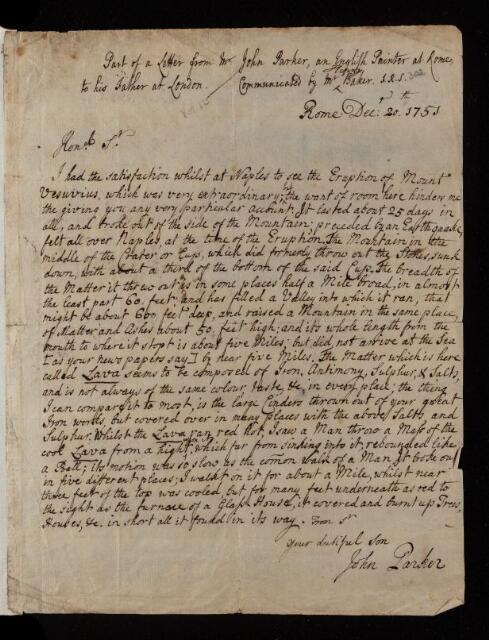 Part of a Letter from Mr. John Parker, an English Painter at Rome,
to his Father at London. Communicated by Mr. Henry Baker. F.R.S.
Rome Decr. 20th. 1751
Honble. Sr.
I had the satisfaction whilst at Naples to see the Eruption of Mount
Vesuvius, which was very extraordinary; the want of room here hinders me
the giving you any very particular account. It lasted about 25 days in
all, and broke out of the side of the Mountain; preceded by an Earthquake
felt all over Naples, at the time of the Eruption. The Mountain in the
middle of the Crater or Cup, which did formerly throw out the Stones, sunk
down, with about a third of the bottom of the said Cup. The breadth of
the Matter it threw out is in some places half a Mile broad, in almost
the least part 60. feet, and has filled a Valley into which it ran, that
might be about 60 feet deep, and raised a Mountain in the same place,
of Matter and Ashes about 50. feet high; and its whole length from the
mouth to where it stopt is about five Miles; but did not arrive at the Sea
[as your news papers say] by near five Miles. The Matter which is here
called Lava seems to be composed of Iron, Antimony, Sulphur, & Salts,
and is not always of the same colour, taste, &c, in every place; the thing
I can compare it to most, is the large Cinders thrown out of your great
Iron works, but covered over in many places with the above Salts and
Sulphur. Whilst the Lava ran red hot, I saw a Man throw a Mass of the
cool Lava from a hight, which far from sinking into it, rebounded like
a Ball; its motion was so slow as the comon walk of a Man. It broke out
in five different places; I walk'd on it for about a Mile, whilst near
three feet of the top was cooled, but for many feet underneath as red to
the sight as the furnace of a Glass House, it covered and burnt up Trees,
Houses, &c. in short all it found in its way. I am Sr.
your dutiful Son
John Parker